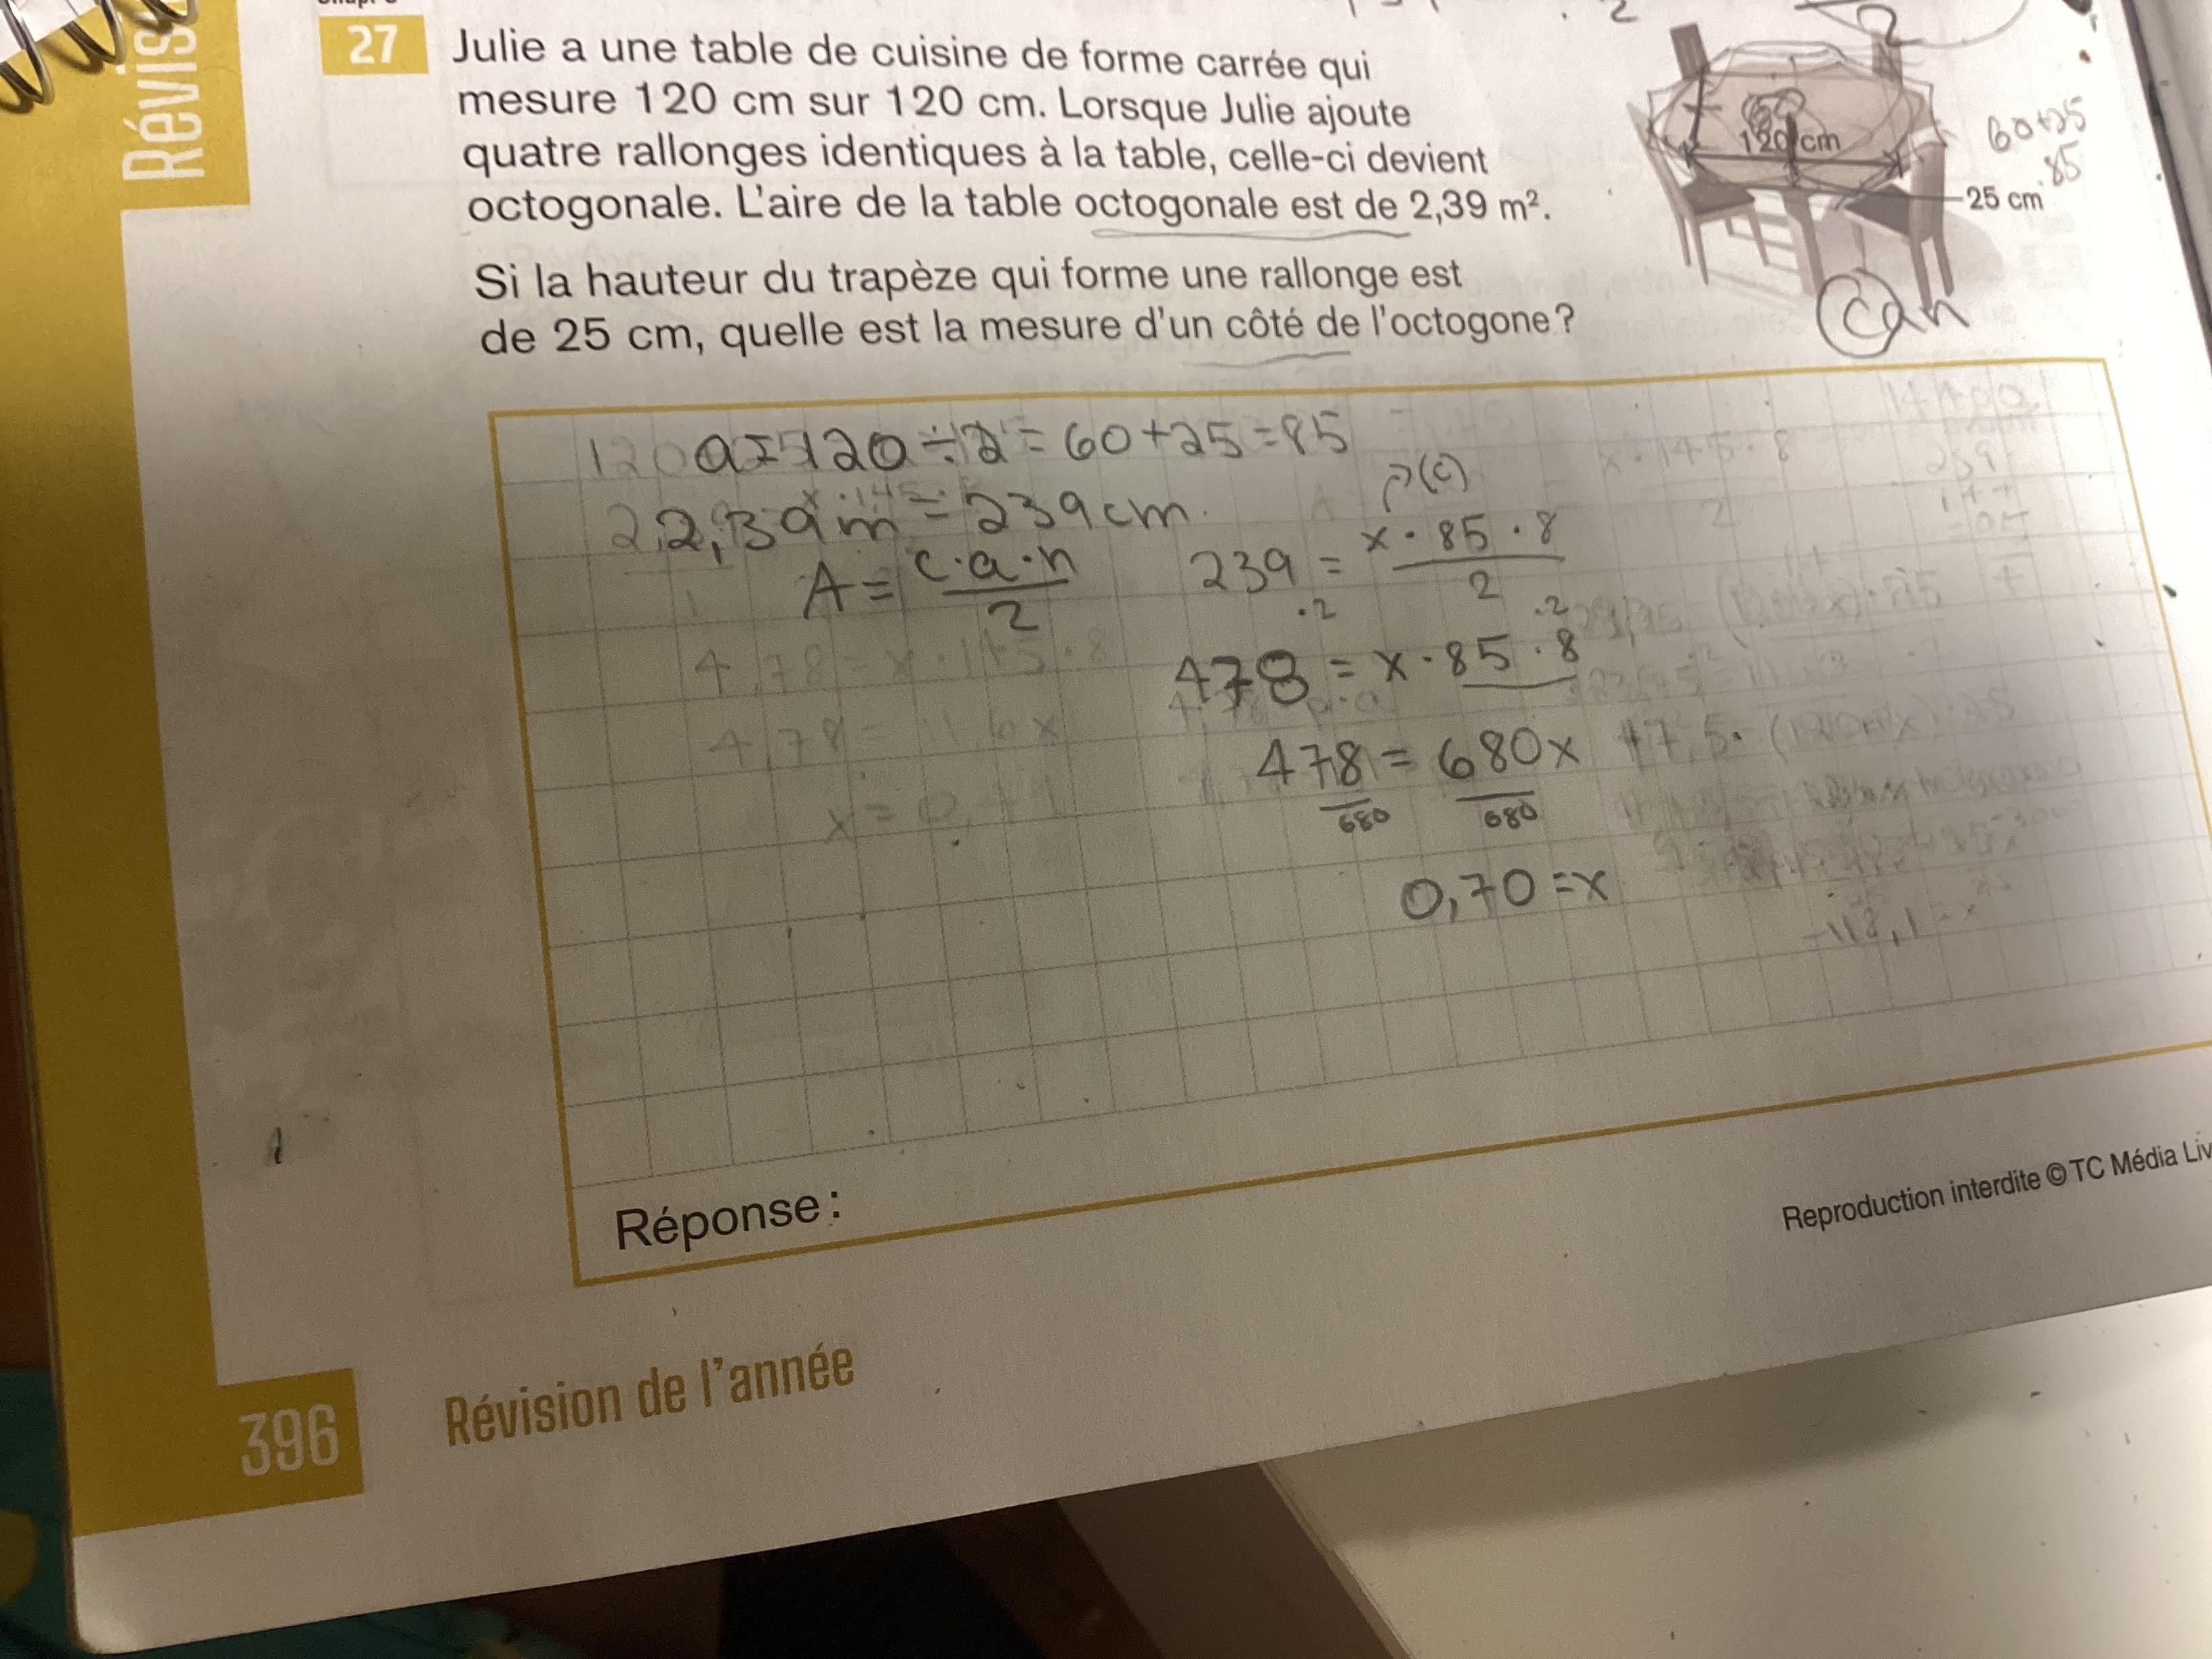 Révis
27 Julie a une table de cuisine de forme carrée qui
mesure 120 cm sur 120 cm. Lorsque Julie ajoute
quatre rallonges identiques à la table, celle-ci devient
octogonale. L'aire de la table octogonale est de 2,39 m².
Si la hauteur du trapèze qui forme une rallonge est
de 25 cm, quelle est la mesure d'un côté de l'octogone?
2
120 cm
60+25
85
25 cm
can
a = 120 ÷ 2 = 60 + 25 = 85
2,39 m = 239 cm
A = c·a·n
2
(c)
239 = x · 85 · 8
2
·2 ·2
478 = x · 85 · 8
478 = 680x
680 680
0,70 = x
4,78 = x · 145 · 8
4,78 = 11,6x
-118,1 = x
Réponse :
Reproduction interdite © TC Média Liv
396 Révision de l'année